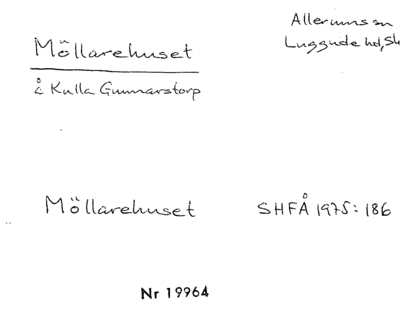 Möllarehuset
å Kulla Gunnarstorp
Allerums sn
Luggude hd, Sk
Möllarehuset
SHFÅ 1975: 186
Nr 19964